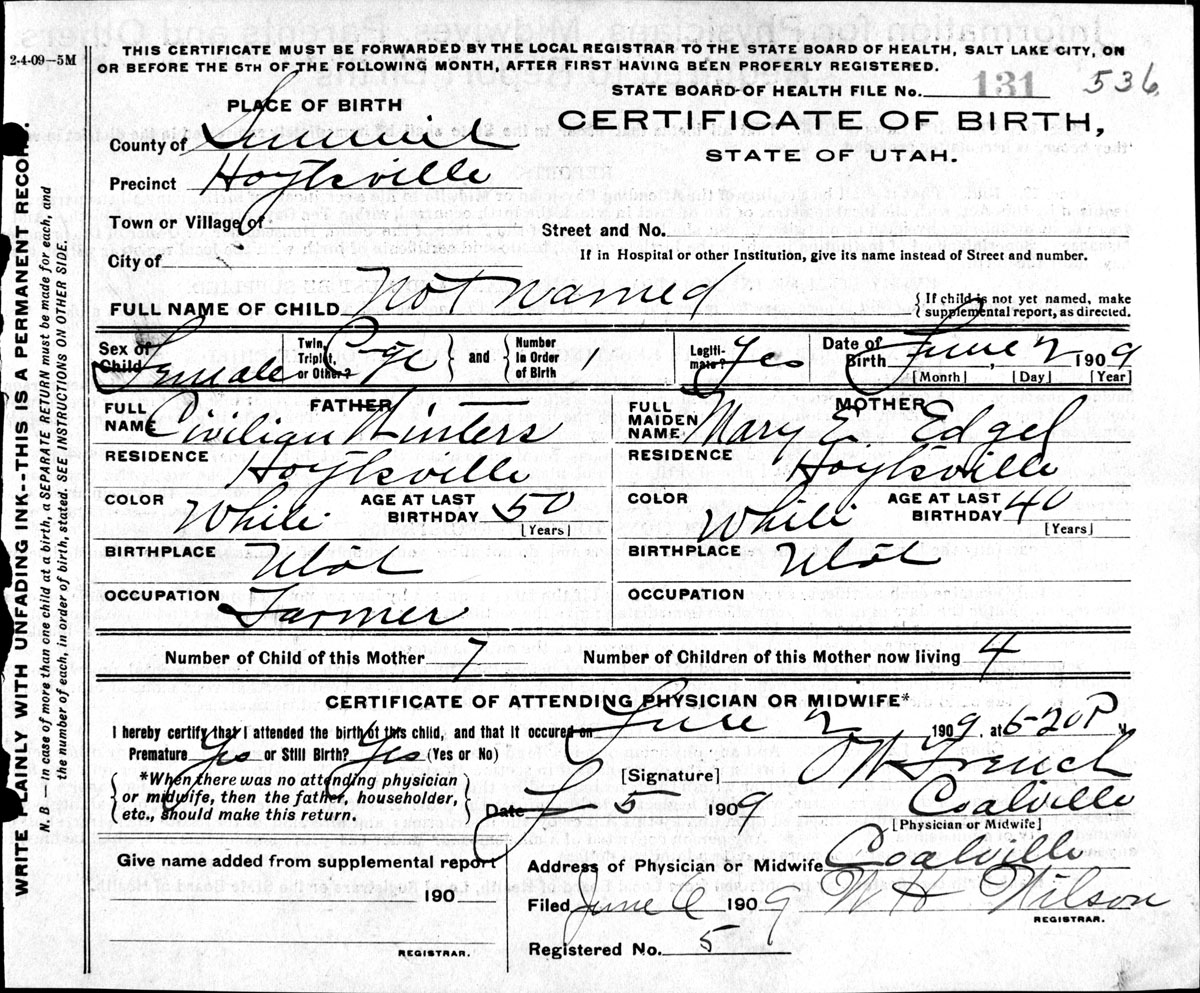 2-4-09—5M
THIS CERTIFICATE MUST BE FORWARDED BY THE LOCAL REGISTRAR TO THE STATE BOARD OF HEALTH, SALT LAKE CITY, ON
OR BEFORE THE 5TH OF THE FOLLOWING MONTH, AFTER FIRST HAVING BEEN PROPERLY REGISTERED.
STATE BOARD OF HEALTH FILE No. 131 536
PLACE OF BIRTH
CERTIFICATE OF BIRTH,
STATE OF UTAH.
County of Summit
Precinct Hoytsville
Town or Village of
Street and No.
City of
If in Hospital or other Institution, give its name instead of Street and number.
FULL NAME OF CHILD Not Named
{If child is not yet named, make
supplemental report, as directed.
Sex of Child Female
Twin, Triplet, or Other?
and
Number in Order of Birth
Legiti- mate? Yes
Date of Birth June 2, 1909
[Month] [Day] [Year]
FATHER
FULL NAME Civilian Winters
RESIDENCE Hoytsville
COLOR White AGE AT LAST BIRTHDAY 50 [Years]
BIRTHPLACE Utah
OCCUPATION Farmer
MOTHER
FULL MAIDEN NAME Mary E. Edgel
RESIDENCE Hoytsville
COLOR White AGE AT LAST BIRTHDAY 40 [Years]
BIRTHPLACE Utah
OCCUPATION
Number of Child of this Mother 7 Number of Children of this Mother now living 4
CERTIFICATE OF ATTENDING PHYSICIAN OR MIDWIFE*
I hereby certify that I attended the birth of this child, and that it occured on June 2 1909, at 5-20 P M
Premature Yes or Still Birth? Yes (Yes or No)
*When there was no attending physician
or midwife, then the father, householder,
etc., should make this return.
[Signature] French
Date 5 1909 Coalville
[Physician or Midwife]
Give name added from supplemental report
190
REGISTRAR.
Address of Physician or Midwife Coalville
Filed June 6 1909 W H Wilson
REGISTRAR.
Registered No. 5
WRITE PLAINLY WITH UNFADING INK--THIS IS A PERMANENT RECORD.
N.B.—In case of more than one child at a birth, a SEPARATE RETURN must be made for each, and
the number of each, in order of birth, stated. SEE INSTRUCTIONS ON OTHER SIDE.